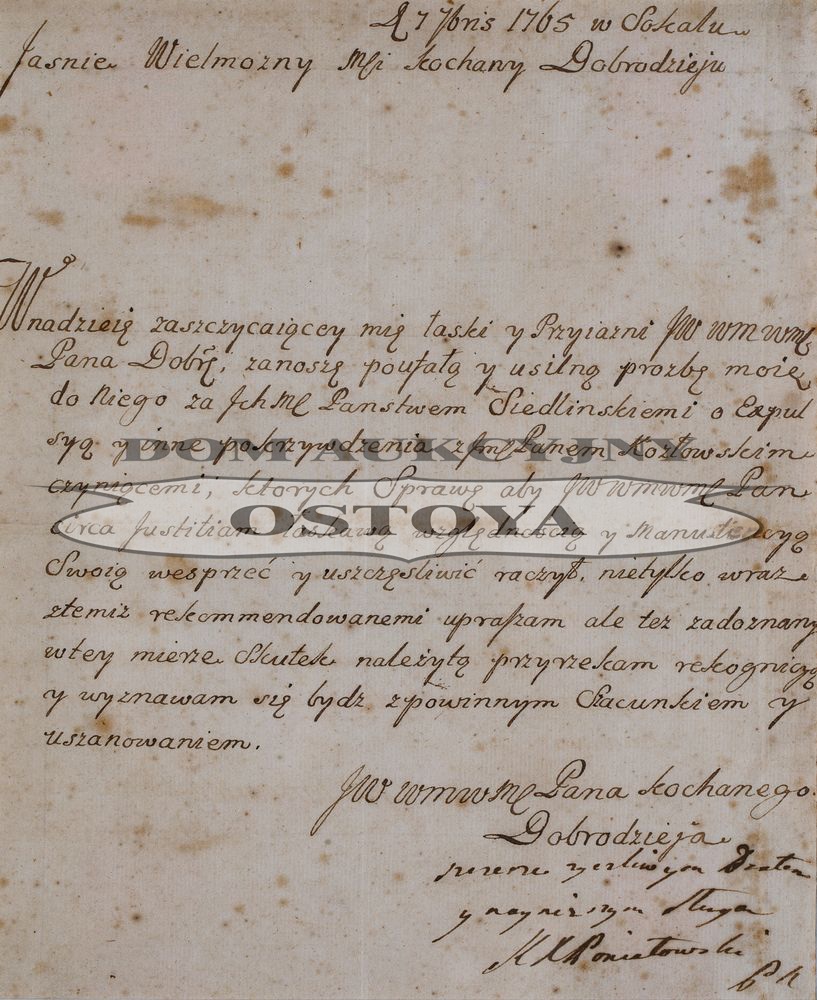 D 7 7bris 1765 w Sokalu
Jasnie Wielmozny Mći kochany Dobrodzieju
W nadzieię zaszczycaiącey mię łaski y Przyiazni JW WM WMę
Pana Dobrę, zanoszę poufałą y usilną prozbę moię
do Niego za JchMę Panstwem Siedlinskiemi o Expul
syą y inne pokrzywdzenia z JmęPanem Kozłowskim
DOM AUKCYJNY
czyniącemi; ktorych Sprawę aby JW WMWMę Pan
OSTOYA
circa Justitiam łaskawą względnoscią y Manutencyą
Swoią wesprzeć y uszczęsliwić raczył, nietylko wraz
ztemiz rekommendowanemi upraszam ale tez zadoznany
wtey mierze Skutek należytą przyrzekam rekognicyą
y wyznawam się bydz zpowinnym Szacunkiem y
uszanowaniem.
JW WMWMę Pana kochanego
Dobrodzieja
szczerze zyczliwym Bratem
y nayniższym sługą
Poniatowski